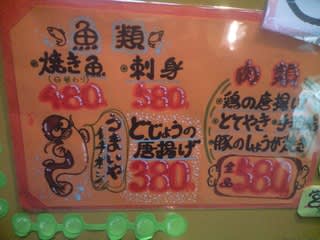 魚類
焼き魚
(日替わり)
480
刺身
580
うまいや
イチオシ
どじょうの
唐揚げ
380
肉類
鶏の唐揚げ
とてやき・手羽先
豚のしょうが焼き
全品
580